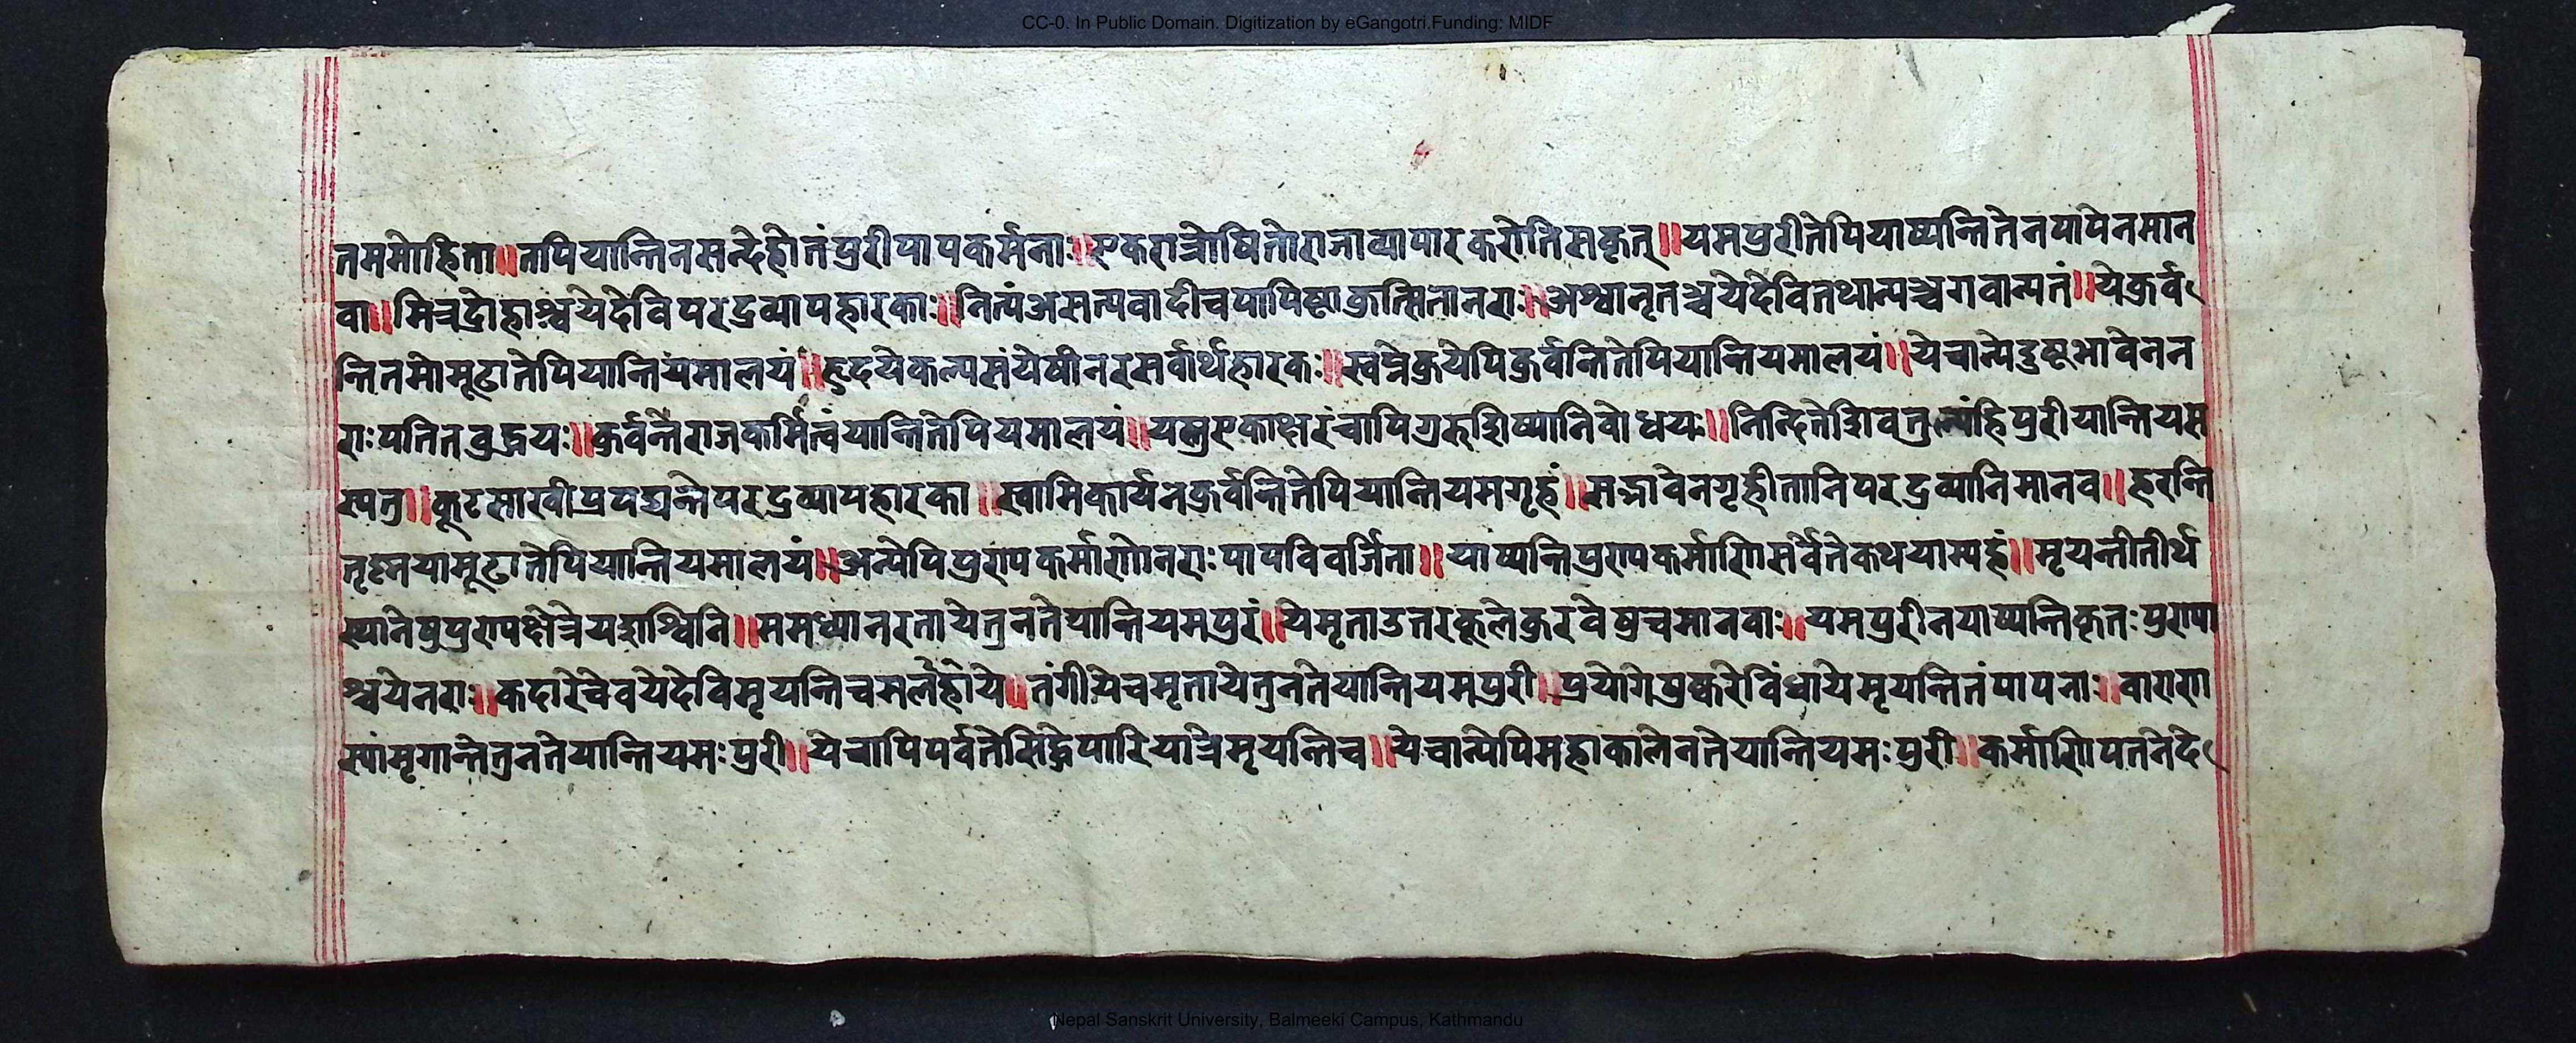 CC-0. In Public Domain. Digitization by eGangotri.Funding: MIDF
तममोहिता॥तपियान्तिनसन्देहोतंपुरीपापकर्मनाः॥एकरात्रोषितोराजाव्यापारकरोतिसकृत्॥यमपुरीतेपियाष्यन्तितेनपापेनमान
वा॥मित्रद्रोहाश्चयेदेविपरद्रव्यापहारकाः॥नित्यंअसत्यवादीचपापिष्टाकुत्सितानराः॥अश्वानृतञ्चयेदेवितथान्यञ्चगवान्यतं॥येकुर्व
न्तितमोमूढातेपियान्तियमालयं॥हृदयेकल्पसंयेषीनरसर्वार्थहारकः॥स्वप्नेकुयेपिकुर्वान्तितेपियान्तियमालयं॥येचान्येदुष्टभावेनन
राःपतितवुद्धयः॥कुर्वन्तेराजकर्मित्वंयान्तितेपियमालयं॥यस्तुएकाक्षरंचापिगुरु निवोधयः॥निन्दितेद्विवतुल्यंहिपुरीयान्तियस
स्यतु॥कूटसाखीप्रपद्यन्तेपरद्रव्यापहारका॥स्वामिकार्यनकुर्वन्तितेपियान्तियमगृहं॥सद्भावेनगृहीतानिपरद्रव्यानिमानव॥हरन्ति
तृष्नयामूढातेपियान्तियमालयं॥अन्येपिपुरापकर्माणोनराःपापविवर्जिता॥याष्यन्तिपुरापकर्माणिसर्वेतेकथयाम्यहं॥मृयन्तीतीर्थ
स्थानेषुपुरापक्षेत्रेयद्वाश्विनि॥ममध्यानरतायेतुनतेयान्तियमपुरं॥येमृताउत्तरकूलेकुरवेषुचमानवाः॥यमपुरीनयाष्यन्तिकृतःपुरापा
श्चयेनराः॥कदारेचेवयेदेविमृयन्तिच ये॥तंगीयेचमृतायेतुनतेयान्तियमपुरी॥प्रयोगेपुष्करेविंध्यायेमृयन्तितंपापनाः॥वाराणा
स्यांमृगान्तेतुनतेयान्तियमःपुरी॥येचापिपर्वतेसिद्धेपारियात्रेमृयन्तिच॥येचान्येपिमहाकालेनतेयान्तियमःपुरी॥कर्माणिपतनेदे
Nepal Sanskrit University, Balmeeki Campus, Kathmandu